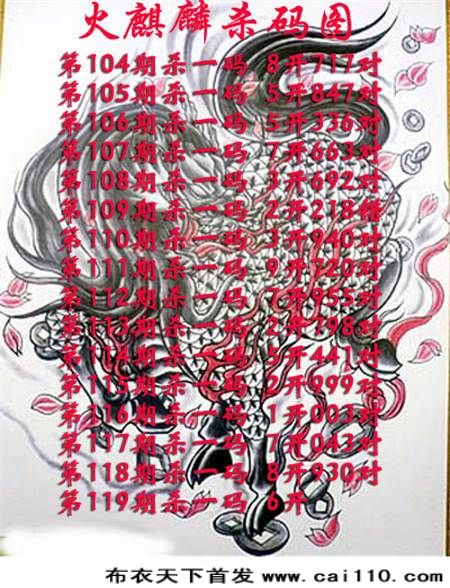 火麒麟杀码图
第104期杀一码 8开717对
第105期杀一码 5开847对
第106期杀一码 5开336对
第107期杀一码 7开663对
第108期杀一码 3开692对
第109期杀一码 2开218错
第110期杀一码 3开940对
第111期杀一码 9开720对
第112期杀一码 7开955对
第113期杀一码 2开798对
第114期杀一码 5开441对
第115期杀一码 2开999对
第116期杀一码 1开003对
第117期杀一码 7开043对
第118期杀一码 8开930对
第119期杀一码 6开
布衣天下首发 www.cai110.com